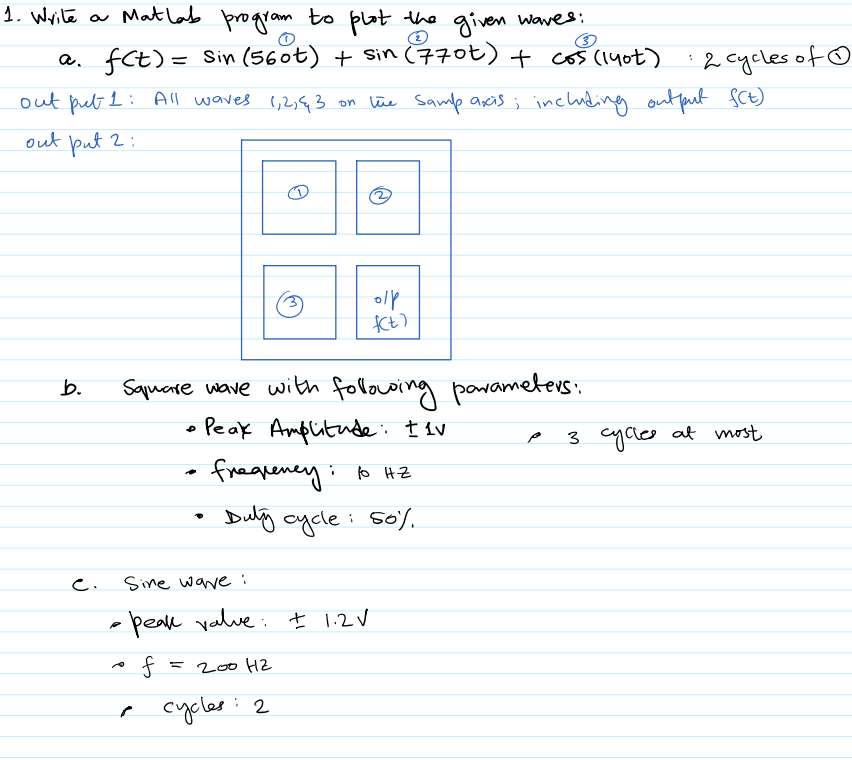 1. Write a Matlab program to plot the given waves:
① ② ③
a. f(t) = Sin (560t) + sin (770t) + cos (140t) : 2 cycles of ①
out put 1: All waves 1,2,& 3 on the samp axis ; including output f(t)
out put 2 :
① ②
③ o/p
f(t)
b. Square wave with following parameters:
• Peak Amplitude: ± 1V • 3 cycles at most
• frequency : 10 HZ
• Duty cycle : 50%.
c. Sine wave :
• peak value: ± 1.2V
• f = 200 HZ
• cycles : 2